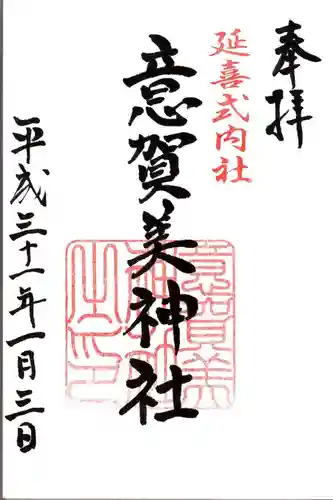 奉拝
延喜式内社
意賀美神社
意賀美神社之印
平成三十一年一月三日